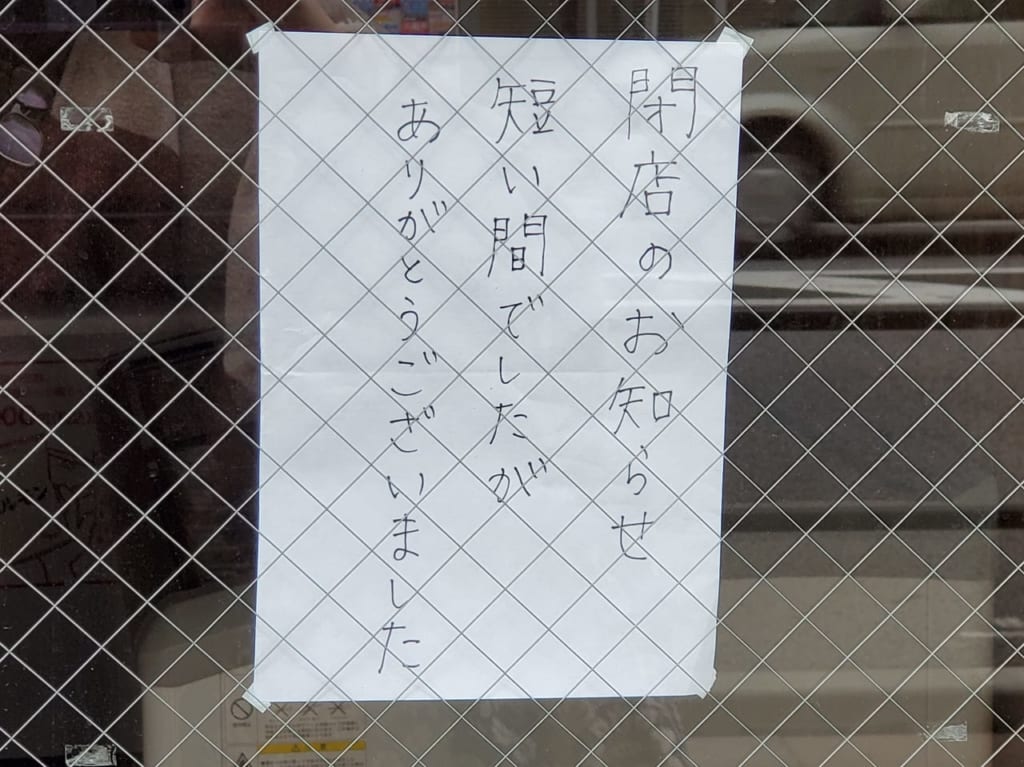 閉店のお知らせ
短い間でしたが
ありがとうございました